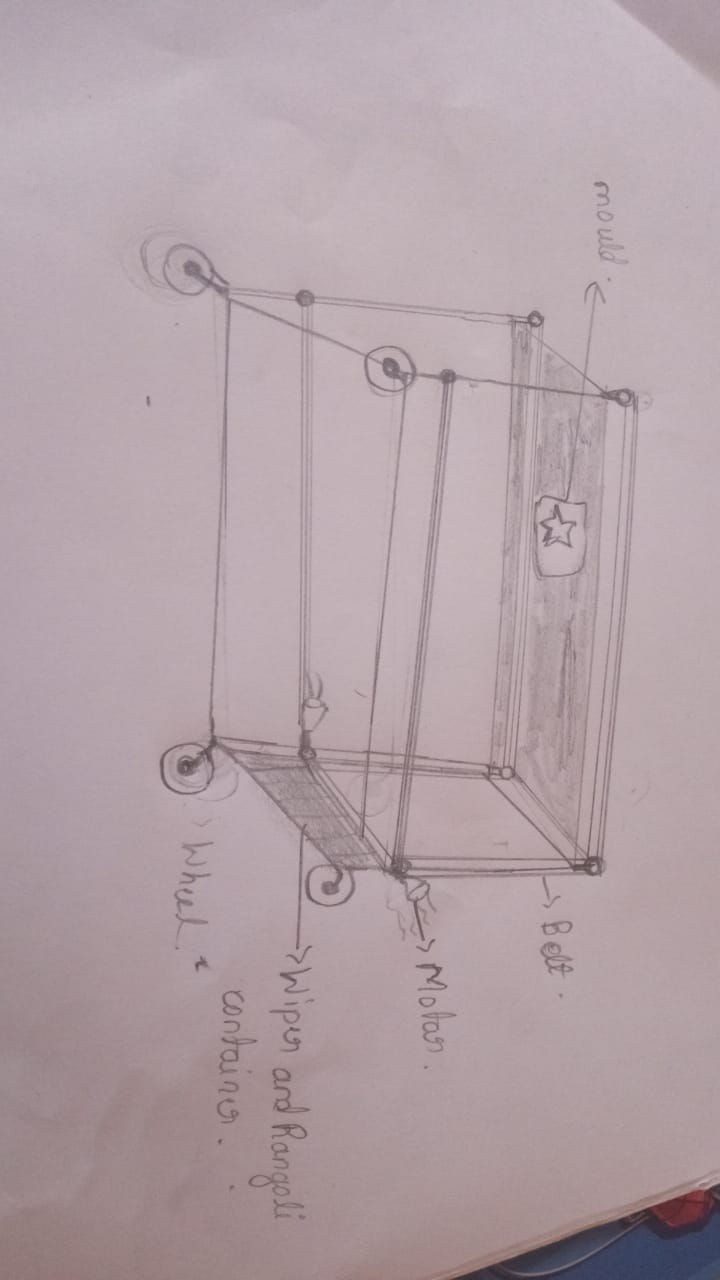 mould.
Belt.
Motor.
Wiper and Rangoli
container.
Wheel.